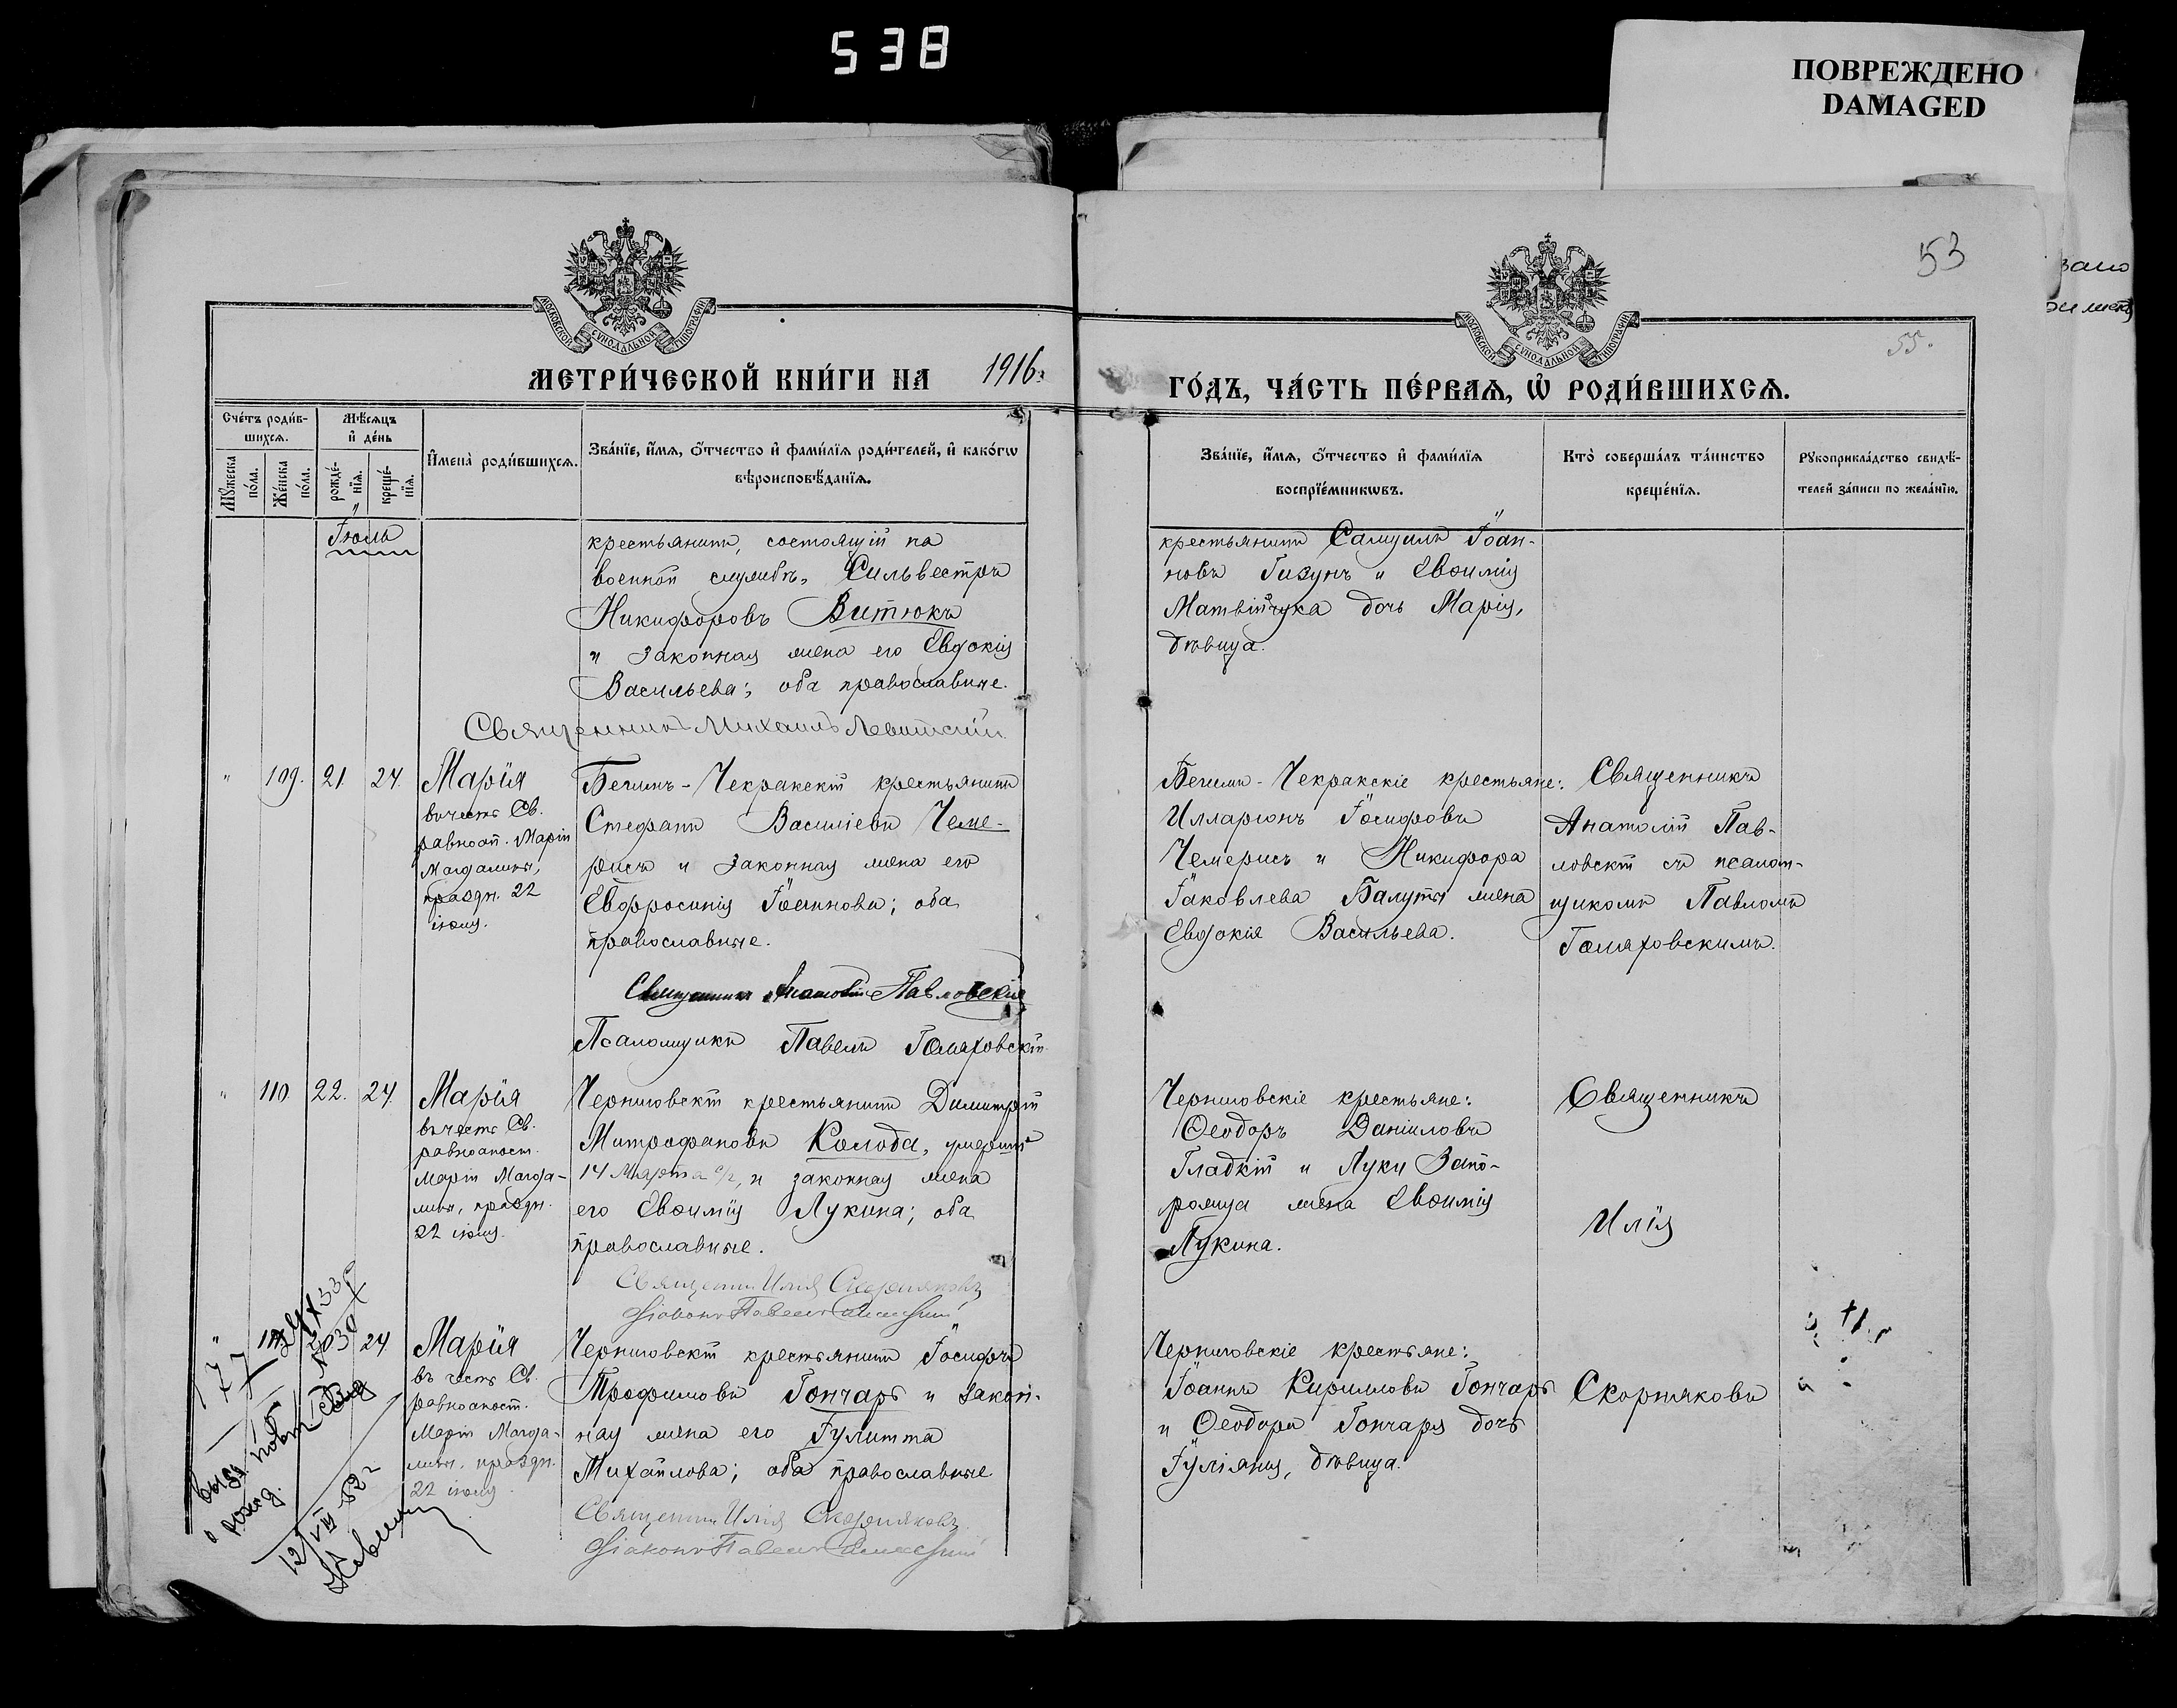 538
ПОВРЕЖДЕНО
DAMAGED
53
55.
МОСКОВСКОЙ СѴНОДАЛЬНОЙ ТИПОГРАФІИ
МОСКОВСКОЙ СѴНОДАЛЬНОЙ ТИПОГРАФІИ
МЕТРИ́ЧЕСКОЙ КНИ́ГИ НА 1916
ГО́ДЪ, ЧА́СТЬ ПЕ́РВАЯ, Ѡ РОДИ́ВШИХСЯ.
Счетъ роди́в-
шихся.
Мѣ́сяцъ
и҆ де́нь
Мꙋжеска
по́ла.
Же́нска
по́ла.
рожде́-
нїя.
креще́-
нїя.
И҆мена̀ роди́вшихся.
Зва́нїе, и҆́мя, ѻ҆́тчество и҆ фами́лїя роди́телей, и҆ како́гѡ
вѣроисповѣ́данїя.
Зва́нїе, и҆́мя, ѻ҆́тчество и҆ фами́лїя
воспрїе́мникѡвъ.
Кто̀ соверша́лъ та́инство
креще́нїя.
Рꙋкоприкла́дство свидѣ́-
телей за́писи по жела́нїю.
Іюль
крестьянинъ, состоящій на
военной службѣ, Сильвестръ
Никифоровъ Витюкъ
и законная жена его Евдокія
Васильева; оба православные.
Священникъ Михаилъ Левитскій
крестьянинъ Самуилъ Іоан-
новъ Гизунъ и Евѳимія
Матвійчука дочь Марія,
дѣвица.
" 109. 21. 24. Марія
въ честь Св.
равноап. Маріи
Магдалины,
праздн. 22
іюля.
Бегимъ-Чекракскій крестьянинъ
Стефанъ Василіевъ Чеме-
рисъ и законная жена его
Евфросинія Іоаннова; оба
православные.
Священникъ Анатолій Павловскій
Псаломщикъ Павелъ Гомяховскій
Бегимъ-Чекракскіе крестьяне:
Илларіонъ Іосифовъ
Чемерисъ и Никифора
Іаковлева Балуты жена
Евдокія Васильева.
Священникъ
Анатолій Пав-
ловскій съ псалом-
щикомъ Павломъ
Гомяховскимъ.
" 110. 22. 24. Марія
въ честь Св.
равноапост.
Маріи Магда-
лины, праздн.
22 іюля.
Черниговскій крестьянинъ Димитрій
Митрофановъ Колода, умершій
14 Марта с/г, и законная жена
его Евѳимія Лукина; оба
православные.
Священник Илія Скорняковъ
Діаконъ Павелъ
Черниговскіе крестьяне:
Ѳеодоръ Даніиловъ
Гладкій и Луки Запо-
рожца жена Евѳимія
Лукина.
Священникъ
Илія
Скорняковъ
" 24 Марія
въ честь Св.
равноапост.
Маріи Магда-
лины, праздн.
22 іюля.
Черниговскій крестьянинъ Іосифъ
Трофимовъ Гончаръ и закон-
ная жена его Іулитта
Михайлова; оба православные.
Священник Илія Скорняковъ
Діаконъ Павелъ
Черниговскіе крестьяне:
Іоаннъ Кирилловъ Гончаръ
и Ѳеодора Гончаря дочь
Іуліанія, дѣвица.
выдн повт. свид
о рожд.
12/VIII 52 г